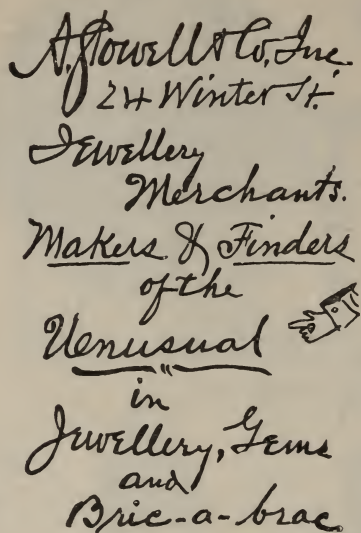 A. Stowell & Co., Inc.
24 Winter St.
Jewellery
Merchants.
Makers & Finders
of the
Unusual
in
Jewellery, Gems
and
Bric-a-brac